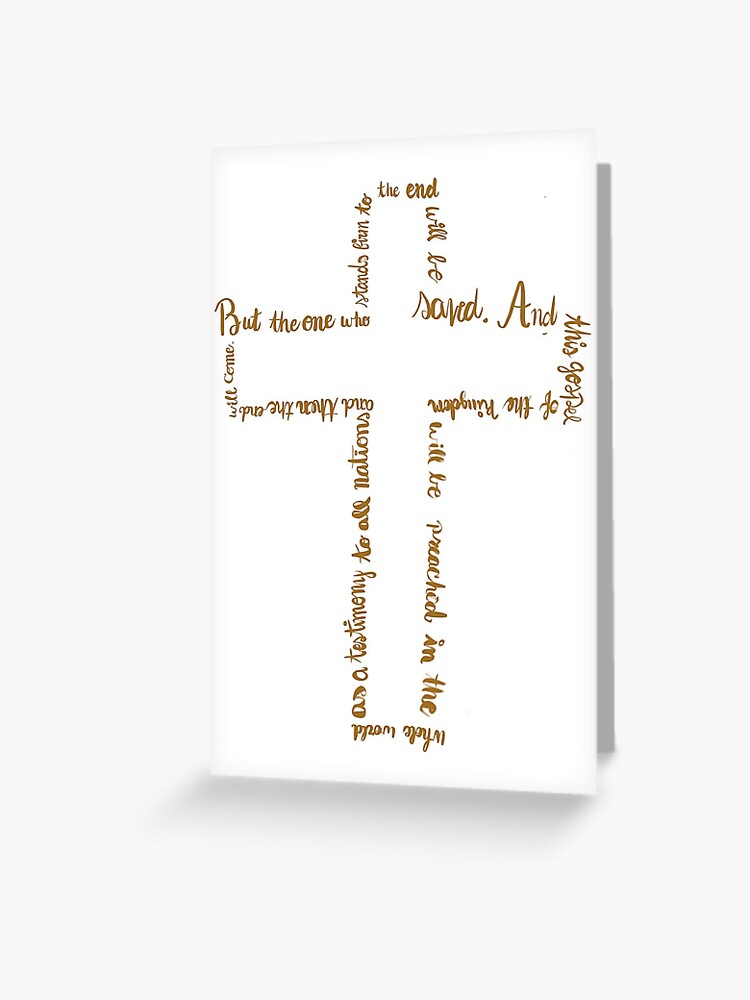 But the one who
stands firm to
the end
will be
saved. And
this gospel
of the Kingdom
will be preached in the
whole world
as a testimony to all nations
and then the end
will come.